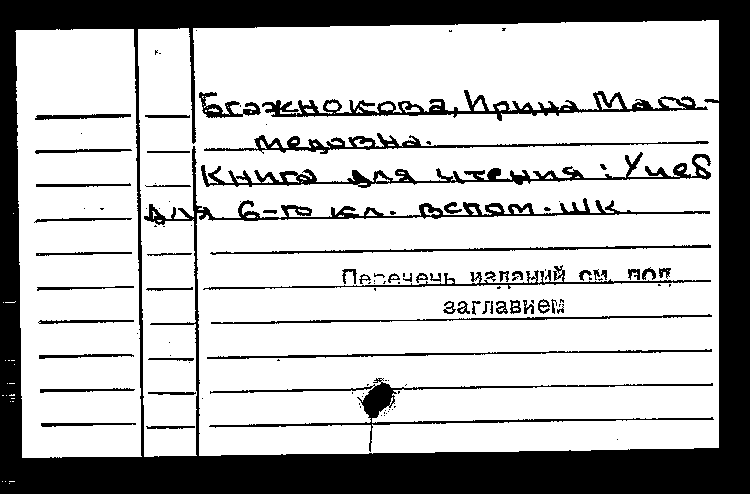 Бгажнокова, Ирина Маго-
медовна.
Книга для чтения : Учеб
для 6-го кл. вспом. шк.
Перечень изданий см. под
заглавием